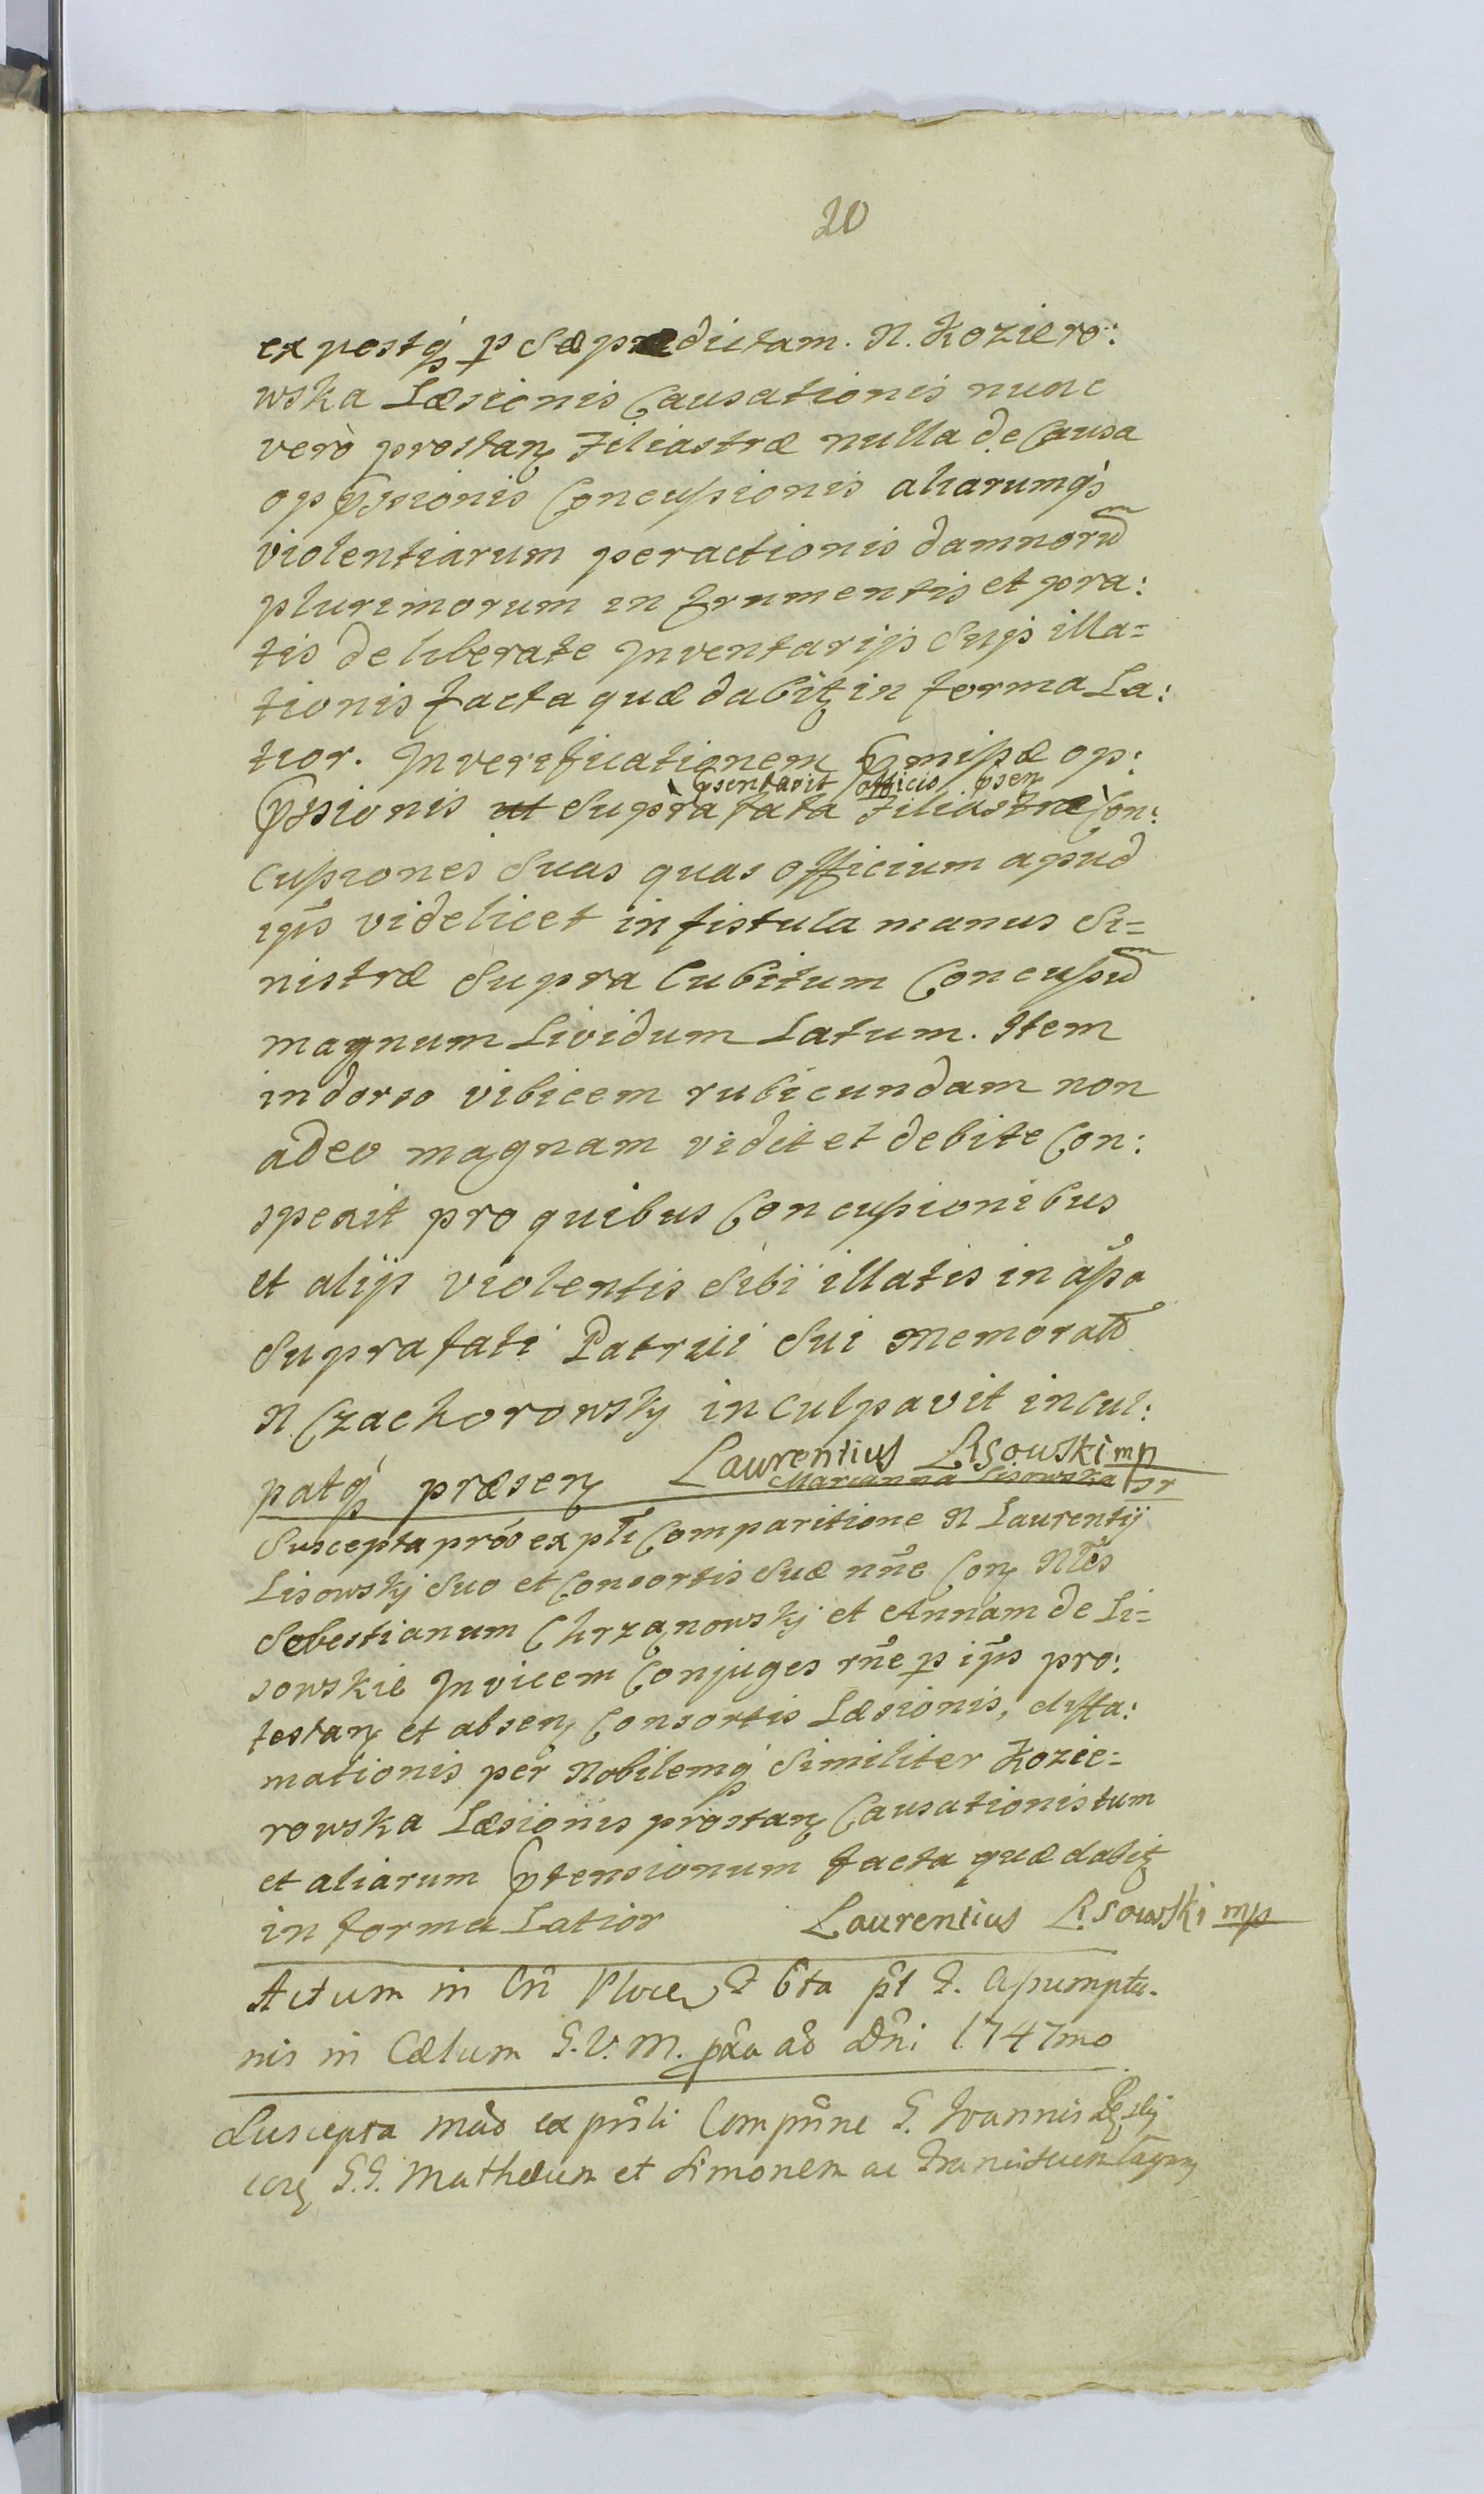 20
ex postq₃ p Sæprædictam. N. Koziero:
wska Læsionis Causationis nunc
verò prostan Filiastræ nulla de Causa
oppssionis Concußionis aliarumq₃
violentiarum peractionis damnorū
plurimorum in frumentis et pra:
tis deliberate Inventarijs Suis illa=
tionis facta quæ dabit in forma La:
tior. In verificationem Pmißæ op:
psentavit officio psen
Pssionis ut Suprafata Filiastra Con:
cußiones Suas quas officium apud
ips̃ videlicet in fistula manus Si=
nistræ Supra Cubitum Concußū
magnum Lividum Latum. Item
in dorso vibicem rubicundam non
adeo magnam vidit et debite Con:
spexit pro quibus Concußionibus
et alijs violentis Sibi illatis in aß̃o
Suprafati Patrui Sui memorato
N Czachorowskj inculpavit incul:
patq₃ præsen Laurentius Lisowski mp
Marianna Lisowska
Suscepta prõo ex pt̃i Comparitione N Laurentij
Lisowskj Suo et Consortis Suæ nñe Con Nt̃es
Sebestianum Chrzanowskj et Annam de Li=
sowskie Invicem Conjuges rñe p ips̃ pro:
testan et absen Consortis Læsionis, diffa:
mationis per Nobilemq₃ Similiter Kozie=
rowska Læsionis prostan Causationis tum
et aliarum Ptensionum facta quæ dabit
in forma Latior Laurentius Lisowski mp
Actum in Crõ Plocen F 6ta p̃t F. Aßumptio-
nis in Cælum B.V.M. pxa aõ Dñi 1747mo
Suscepta mãd ex pñti Compñne G. Joannis
con G.G. Mathæum et Simonem ac Franciscum